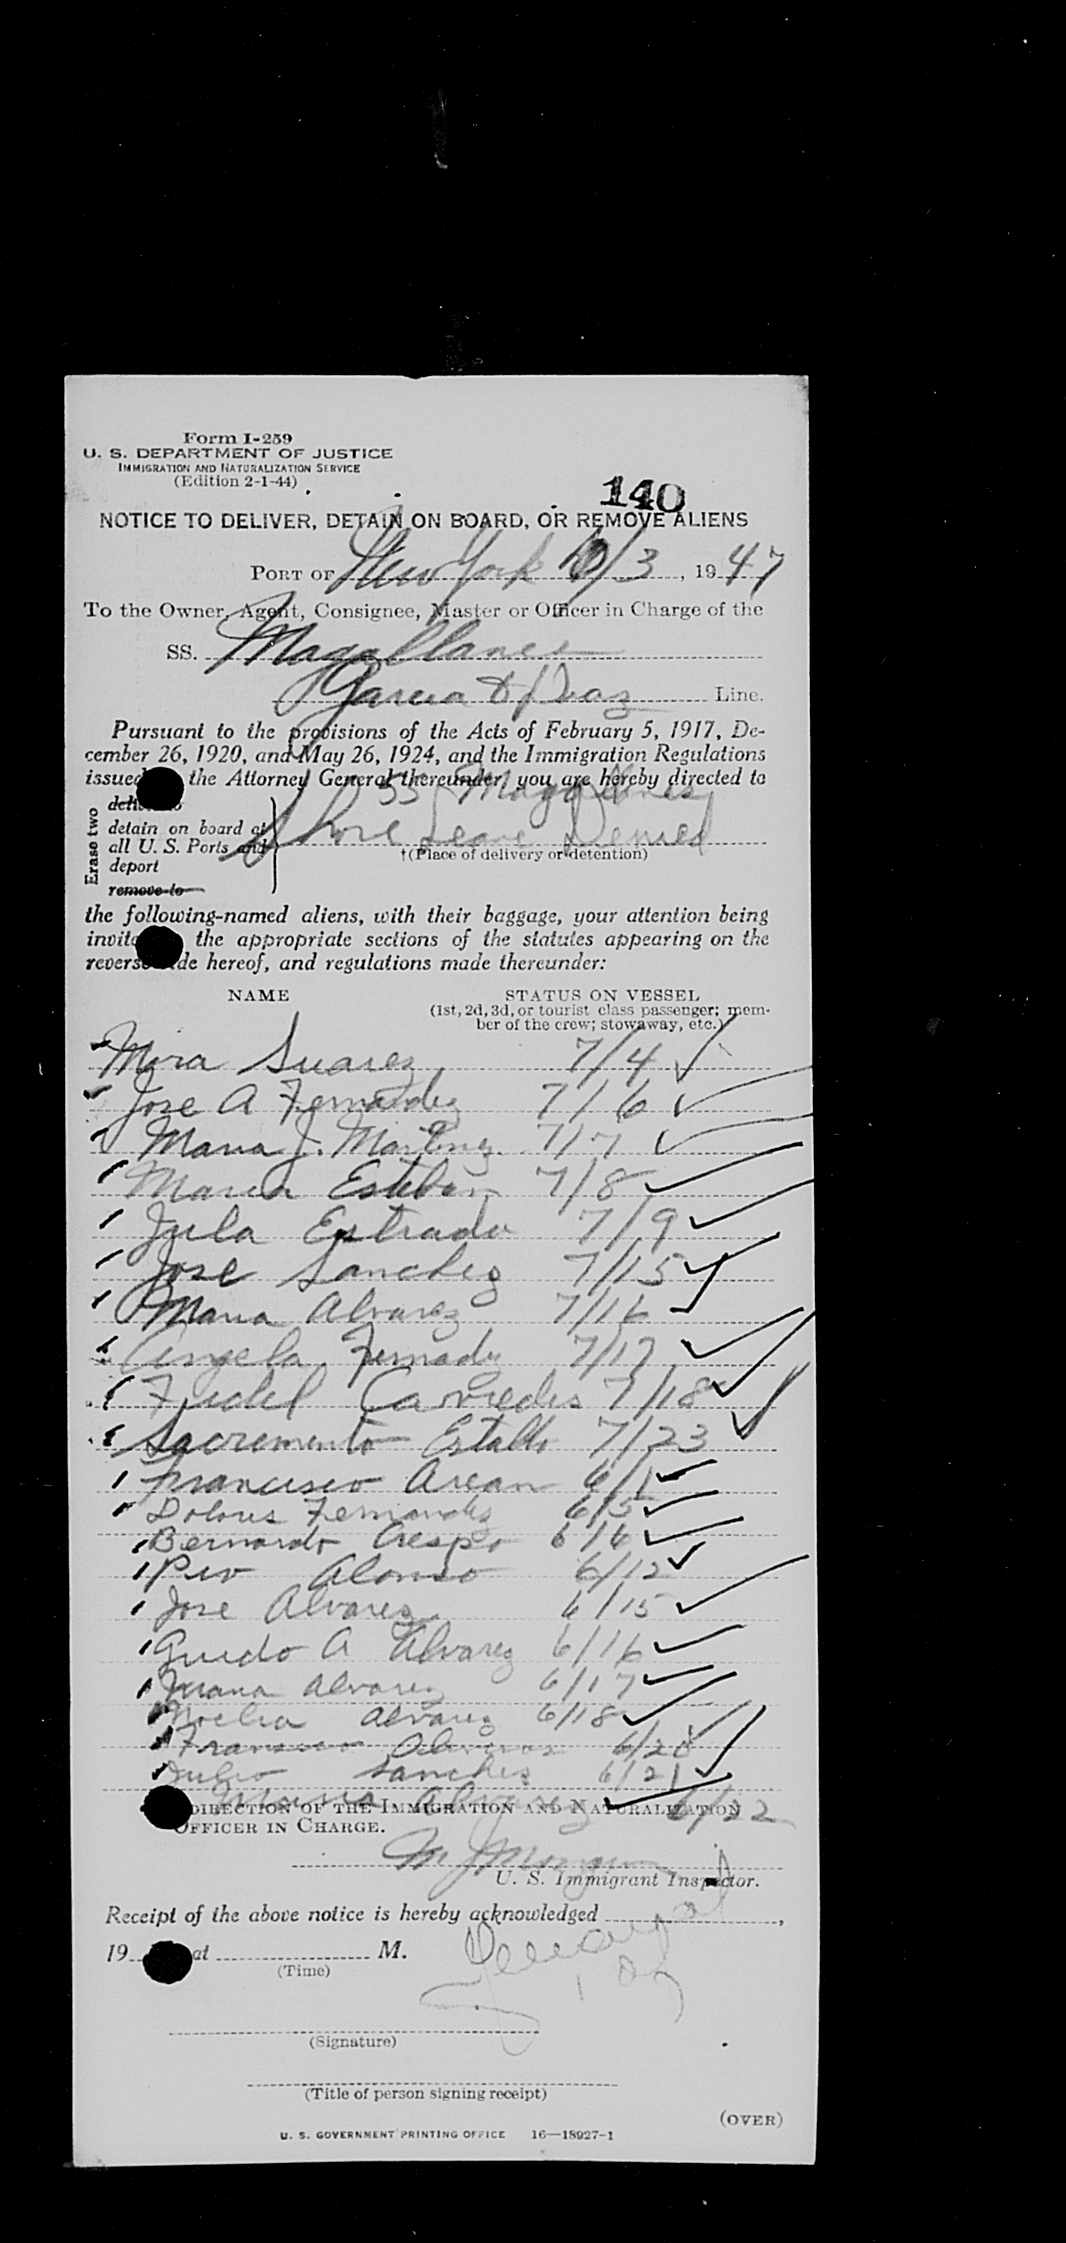 Form I-259
U. S. DEPARTMENT OF JUSTICE
IMMIGRATION AND NATURALIZATION SERVICE
(Edition 2-1-44)
140
NOTICE TO DELIVER, DETAIN ON BOARD, OR REMOVE ALIENS
PORT OF New York /3, 1947
To the Owner, Agent, Consignee, Master or Officer in Charge of the
SS. Magallanes
Garcia & Diaz Line.
Pursuant to the provisions of the Acts of February 5, 1917, De-
cember 26, 1920, and May 26, 1924, and the Immigration Regulations
issued the Attorney General thereunder, you are hereby directed to
SS Magallanes
Erase two
detain on board at
all U. S. Ports and
deport
remove to
Shore Leave Denied
†(Place of delivery or detention)
the following-named aliens, with their baggage, your attention being
the appropriate sections of the statutes appearing on the
hereof, and regulations made thereunder:
NAME STATUS ON VESSEL
(1st, 2d, 3d, or tourist class passenger; mem-
ber of the crew; stowaway, etc.)
Mira Suarez 7/4
Jose A Fernandez 7/6
Maria J. Martinez 7/7
Maria Esteban 7/8
Jula Estrada 7/9
Jose Sanchez 7/15
Maria Alvarez 7/16
Angela Fernadez 7/17
Fidel 7/18
Sacremento 7/23
Francisco Arean 6/1
Dolores Fernandez 6/5
Bernardo Crespo 6/6
Pio Alonso 6/12
Jose Alvarez 6/15
Guido A Alvarez 6/16
Juana Alvarez 6/17
Noelia Alvarez 6/18
6/20
Julio Sanchez 6/21
Maria Alvarez 6/22
DIRECTION OF THE IMMIGRATION AND NATURALIZATION
OFFICER IN CHARGE.
U. S. Immigrant Inspector.
Receipt of the above notice is hereby acknowledged ,
19 at M.
(Time)
(Signature)
(Title of person signing receipt)
(OVER)
U. S. GOVERNMENT PRINTING OFFICE 16—18927-1